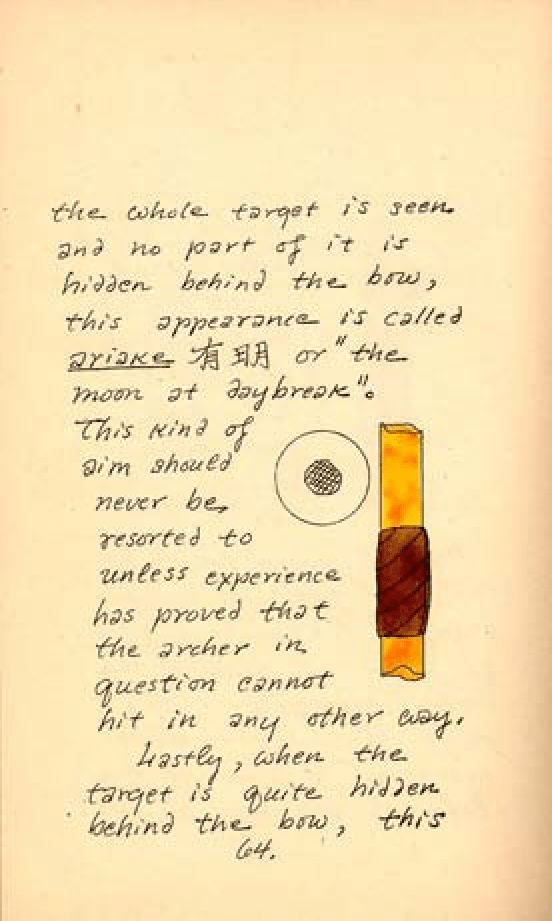 the whole target is seen
and no part of it is
hidden behind the bow,
this appearance is called
ariake 有明 or "the
moon at daybreak".
This kind of
aim should
never be
resorted to
unless experience
has proved that
the archer in
question cannot
hit in any other way.
Lastly, when the
target is quite hidden
behind the bow, this
64.